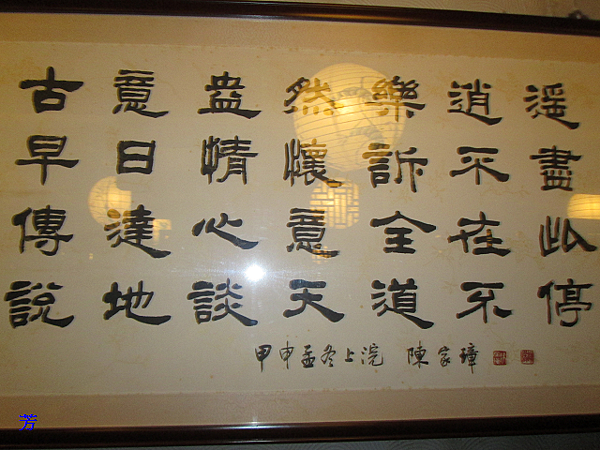 古意盎然樂逍遥
早日情懷訴不盡
傳達心意全在此
說地談天道不停
甲申孟冬上浣 陳家璋
芳